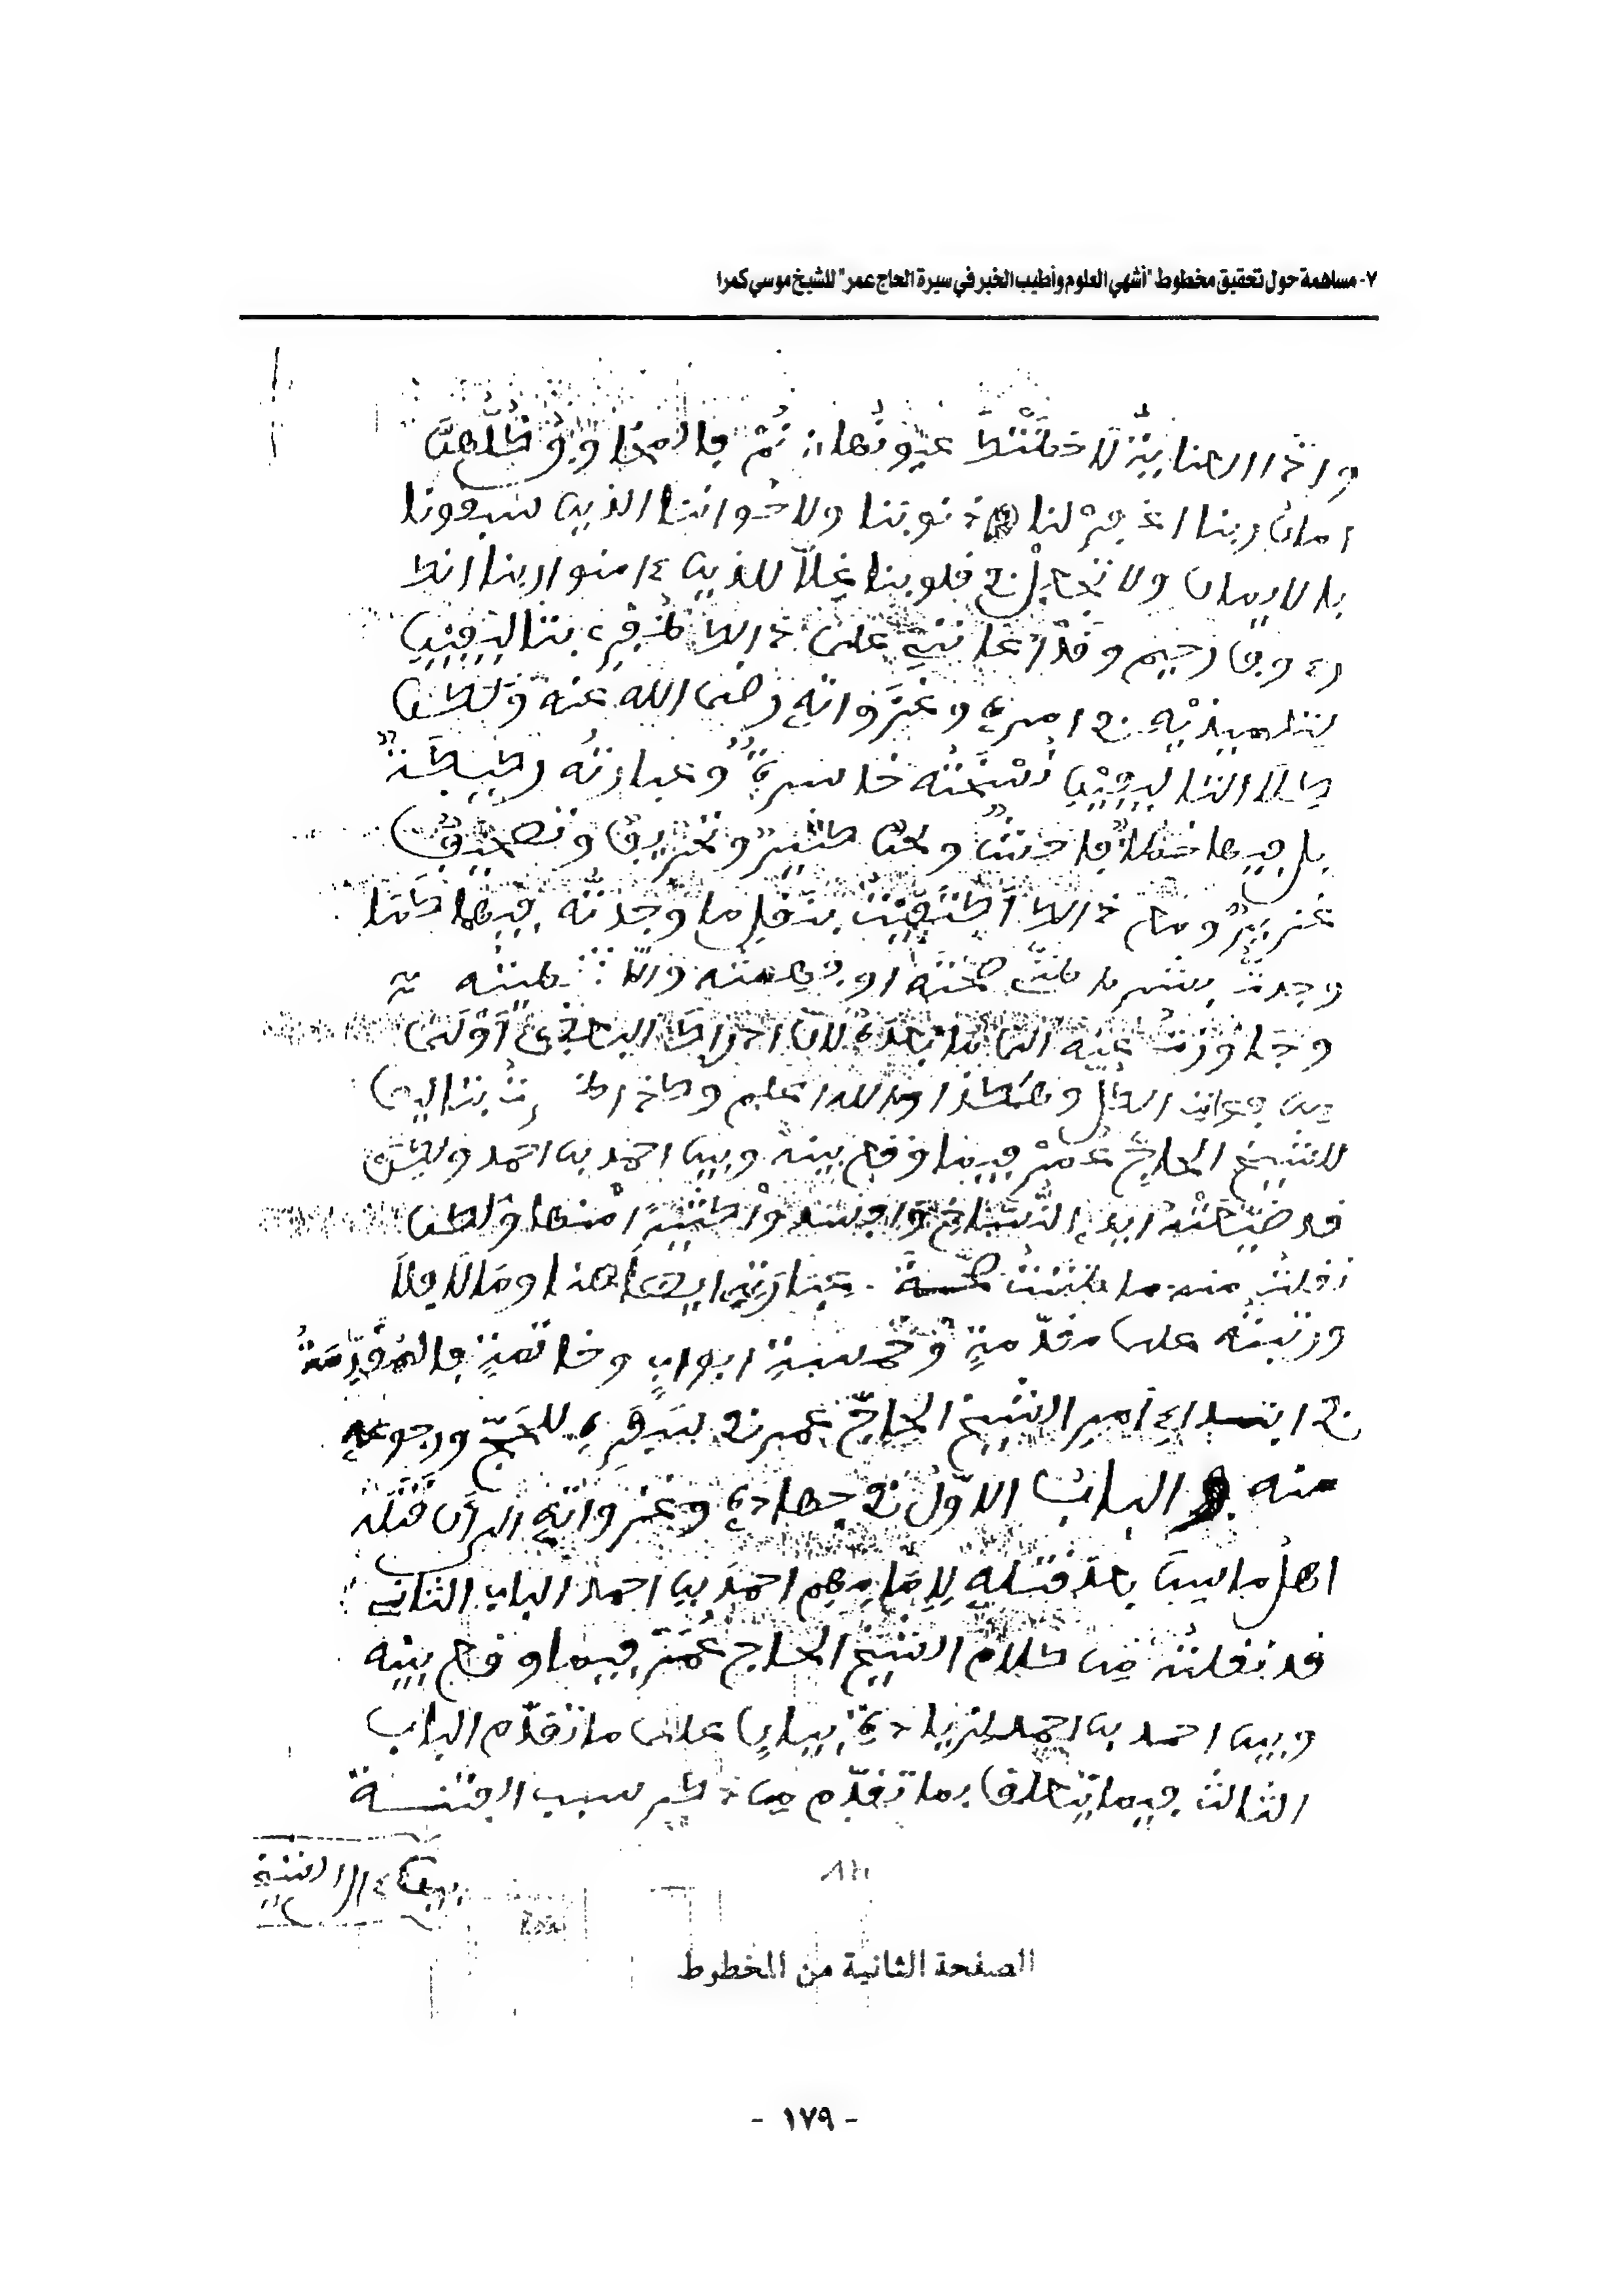 ٧- مساهمة حول تحقيق مخطوط "أشهي العلوم وأطيب الخبر في سيرة الحاج عمر" للشيخ موسي كمرا
واذا العناية لاحظتك عيونها نم فالمخاوف كلهن
امان ربنا اغفر لنا ذنوبنا ولاخواننا الذين سبقونا
بالايمان ولا تجعل في قلوبنا غلا للذين ءامنوا ربنا انك
رءوف رحيم وقد اعانني على ذلك ظفري بتاليفين
لتلميذيه في امره وغزواته رضي الله عنه ولكن
كلا التاليفين نسخته خاسرة وعبارته ركيكة
بل فيها خطأ فاحش ولحن كثير وتحريف وتصحيف
غزير ومع ذلك اكتفيت بنقل ما وجدته فيهما كما
وجدت بشرط ظن صحته او فهمته والا تركته
وجاوزت عنه الى ما بعده لان ادراك البعض اولى
من فوات الكل وهكذا والله اعلم وكذلك تاليف
للشيخ الحاج عمر فيما وقع بينه وبين احمد بن احمد ولكن
قد ضيعته ايدي النساخ وافسدوا كثيرا منها ولكن
نقلت منه ما ظننت صحة عبارته ايضا هذا وما لا فلا
ورتبته على مقدمة وخمسة ابواب وخاتمة فالمقدمة
في ابتداء امر الشيخ الحاج عمر في سفره للحج ورجوعه
منه والباب الاول في جهاده وغزواته الى ان قتله
اهل ماسين بعد قتله لامامهم احمد بن احمد الباب الثاني
قد نقلته من كلام الشيخ الحاج عمر فيما وقع بينه
وبين احمد بن احمد لزيادة بيان على ما تقدم الباب
الثالث فيما يتعلق بما تقدم من ذكر سبب الفتنة
الصفحة الثانية من المخطوط
- ١٧٩ -